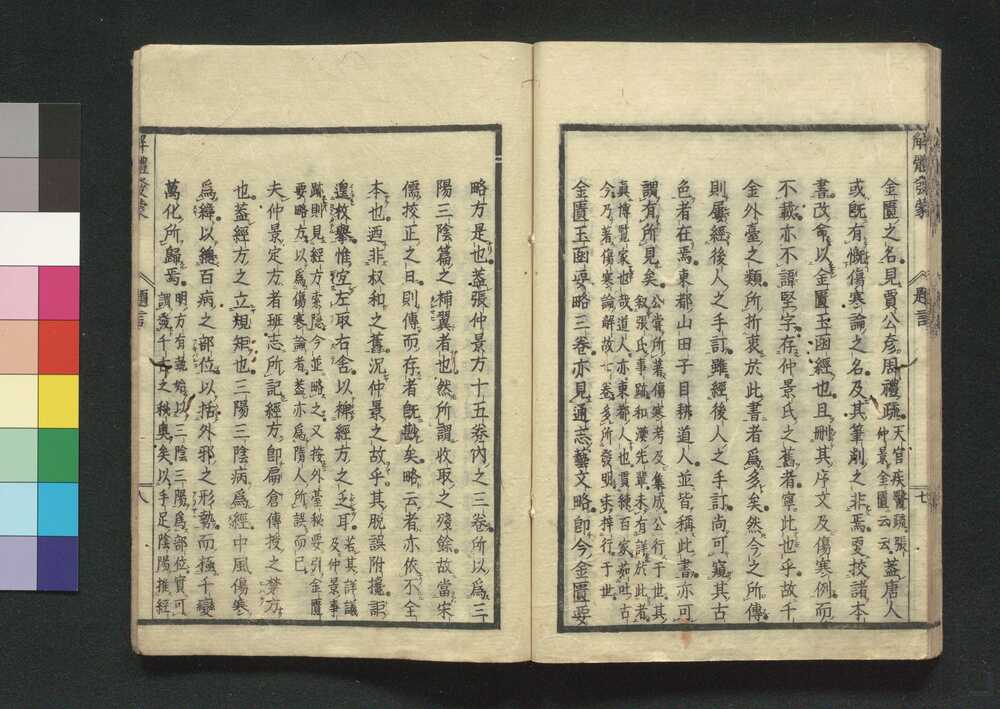 金匱之名見賈公彦周禮疏天官疾醫疏張仲景金匱云云蓋唐人
或既有慨傷寒論之名及其筆削之非焉更挍諸本
書改命以金匱玉函經也且刪其序文及傷寒例而
不載亦不諱堅字存仲景氏之舊者寧此也乎故千
金外臺之類所折衷於此書者為多矣然今之所傳
則屢經後人之手訂雖經後人之手訂尚可窺其古
色者在焉東都山田子目耕道人並皆稱此書亦可
謂有所見矣公嘗所著傷寒考及集成公行于世其敍張氏事跡和漢先輩未有詳於此者
真博覧家也哉道人亦東都人也貫穗百家茹吐古今乃著傷寒論解故七卷多所發明未梓行于世
金匱玉函要略三卷亦見通志藝文略即今金匱要
解體發蒙
題言
七
略方是也蓋張仲景方十五卷內之三卷所以為三
陽三陰篇之補翼者也然所謂收取之殘餘故當宋
儒挍正之日則傳而存者既尠矣略云者亦依不全
本也迺非叔和之舊況仲景之故乎其脫誤附攙
遑枚擧惟宜左取右舍以裨經方之乏耳若其詳議及仲景事
跡則見經方索隱今並略之又按外臺秘要引金匱要略方以為傷寒論者蓋亦為隋人所誤而已
夫仲景定方者班志所記經方即扁倉傳授之禁方
也蓋經方之立規矩也三陽三陰病為經中風傷寒
為緯以纏百病之部位以括外邪之形勢而極千變
萬化所歸焉明方有執始以三陰三陽為部位實可謂發千古之秘奥矣以手足陰陽推經
解體發蒙
題言
八